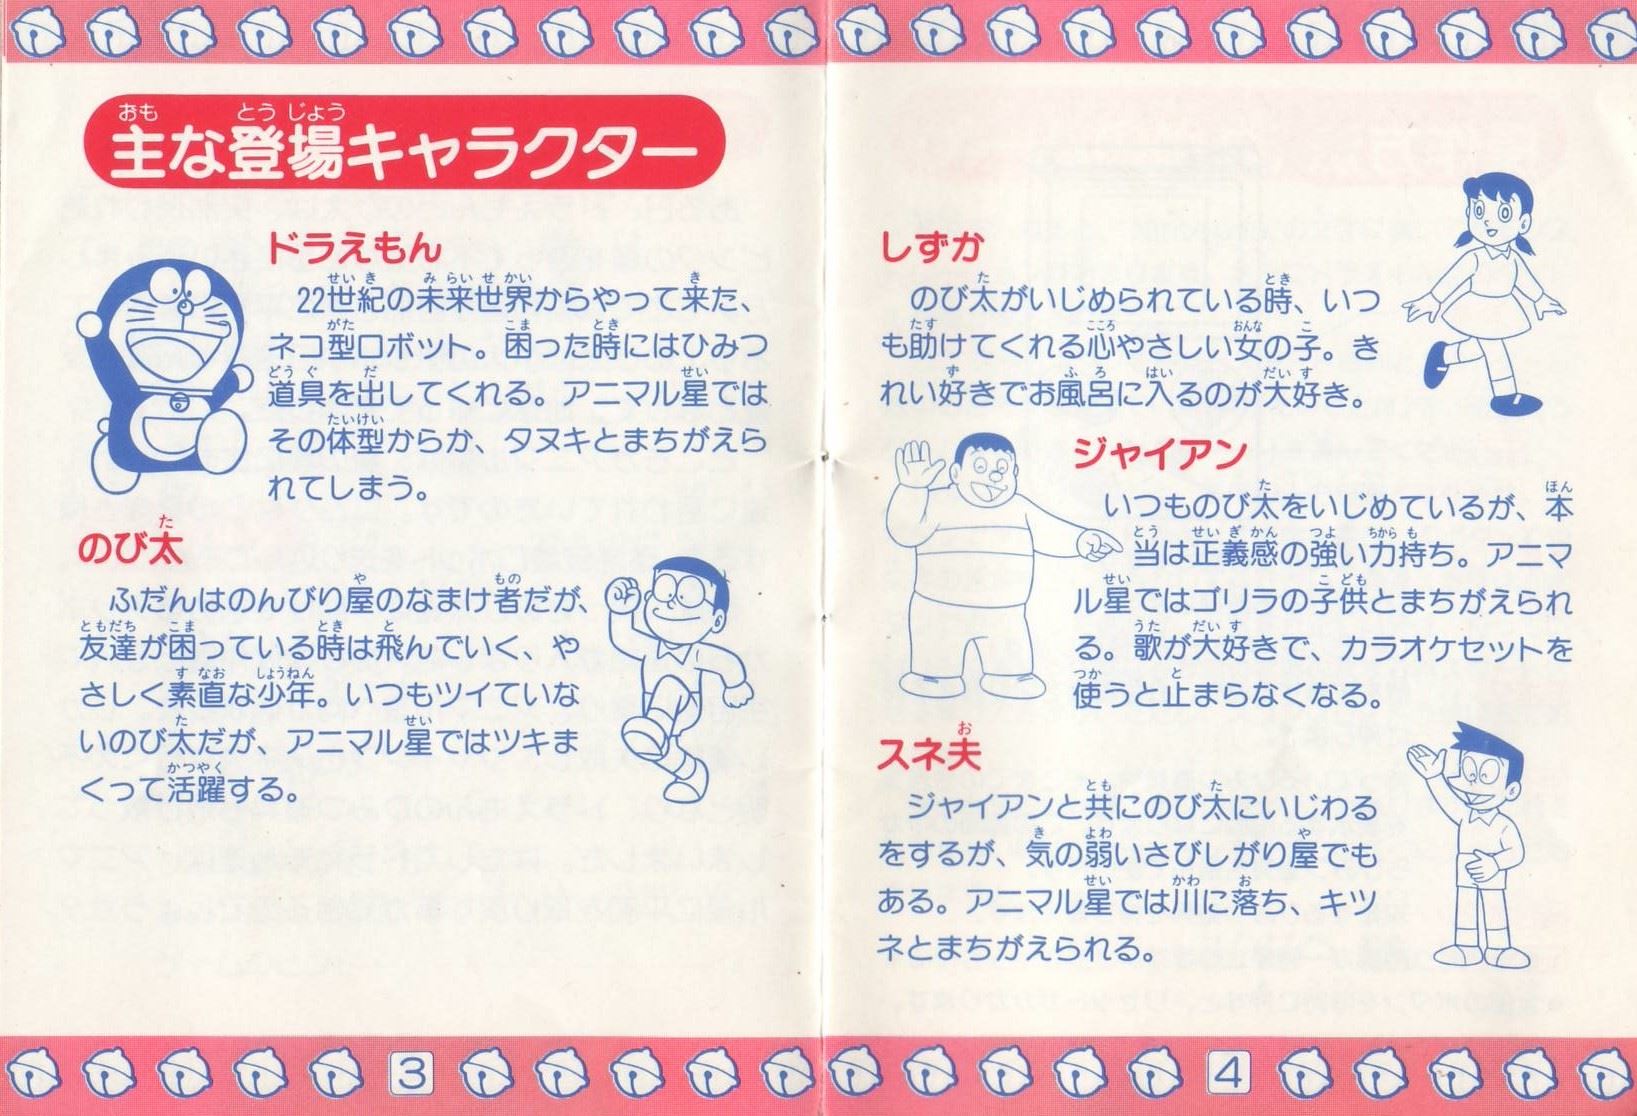 主な登場キャラクター
ドラえもん
22世紀の未来世界からやって来た、
ネコ型ロボット。困った時にはひみつ
道具を出してくれる。アニマル星では
その体型からか、タヌキとまちがえら
れてしまう。
のび太
ふだんはのんびり屋のなまけ者だが、
友達が困っている時は飛んでいく、や
さしく素直な少年。いつもツイていな
いのび太だが、アニマル星ではツキま
くって活躍する。
3
しずか
のび太がいじめられている時、いつ
も助けてくれる心やさしい女の子。き
れい好きでお風呂に入るのが大好き。
ジャイアン
いつものび太をいじめているが、本
当は正義感の強い力持ち。アニマ
ル星ではゴリラの子供とまちがえられ
る。歌が大好きで、カラオケセットを
使うと止まらなくなる。
スネ夫
ジャイアンと共にのび太にいじわる
をするが、気の弱いさびしがり屋でも
ある。アニマル星では川に落ち、キツ
ネとまちがえられる。
4